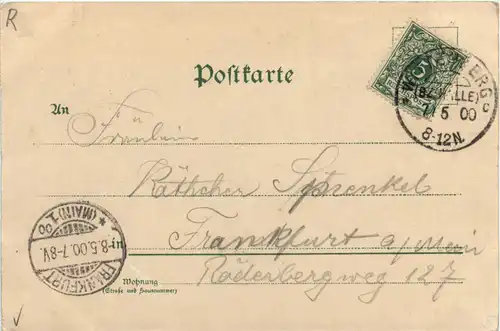 R
Postkarte
WITTENBERG
(BZ. HALLE)
5 00
8-12N.
c
5
An
Fräulein
Käthchen Sprenkel
in
Frankfurt a/Main
Röderbergweg 127
Wohnung
(Straße und Hausnummer)
FRANKFURT
* (MAIN) 1
8.5.00.7-8V.